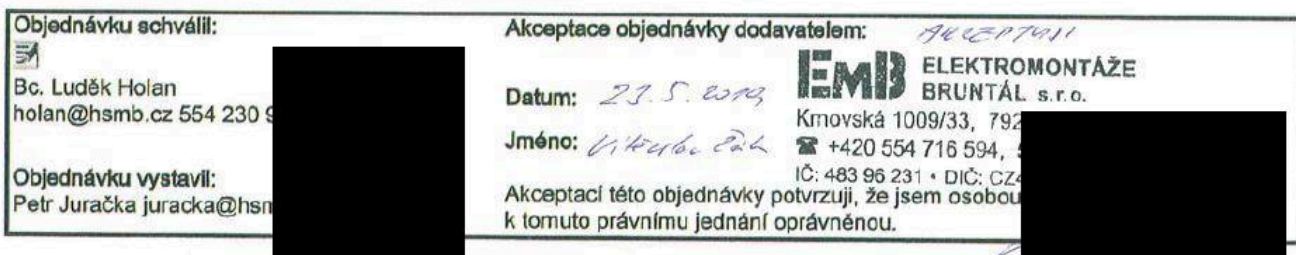 Objednávku schválil:
Bc. Luděk Holan
holan@hsmb.cz 554 230 9
Objednávku vystavil:
Petr Juračka juracka@hsm
Akceptace objednávky dodavatelem:
Datum: 23.5.2019
Jméno:
EMB ELEKTROMONTÁŽE
BRUNTÁL s.r.o.
Krnovská 1009/33, 792
☎ +420 554 716 594,
IČ: 483 96 231 • DIČ: CZ4
Akceptací této objednávky potvrzuji, že jsem osobou
k tomuto právnímu jednání oprávněnou.